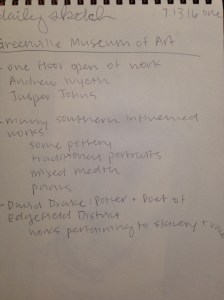 daily sketch 7.13.16 one
Greenville Museum of Art
- one floor open of work
Andrew Wyeth
Jasper Johns
- many southern influenced
works
some pottery
traditional portraits
mixed media
- David Drake: Potter + Poet of
Edgefield District
works pertaining to slavery +